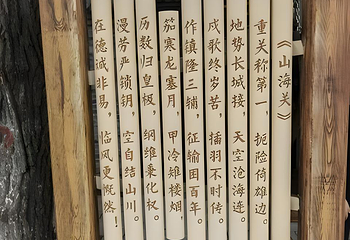 《山海关》
重关称第一，扼险倚雄边。
地势长城接，天空沧海连。
戍歌终岁苦，插羽不时传。
作镇隆三辅，征输困百年。
笳寒龙塞月，甲冷雉楼烟
历数归皇极，纲维秉化权。
漫芳严锁钥，空自结山川。
在德诚非易，临风更慨然！